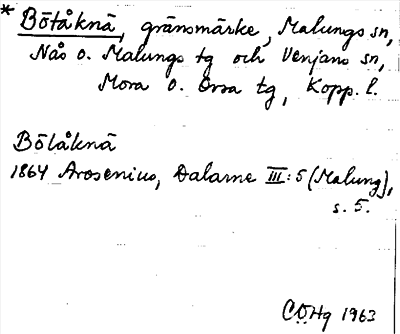 * Bötåknä, gränsmärke, Malungs sn,
Nås o. Malungs tg och Venjans sn,
Mora o. Orsa tg, Kopp. l.
Bötåknä
1864 Arosenius, Dalarne III:5 (Malung),
s. 5.
CÖHg 1963